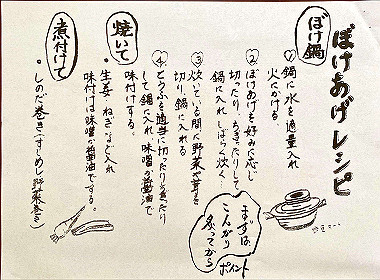 ぼけあげレシピ
ぼけ鍋
① 鍋に水を適量入れ
火にかける。
② ぼけあげを好みに応じ
切ったり、ちぎったりして
鍋に入れ、しばら炊く…
③ 炊いている間に野菜や茸を
切り、鍋に入れる
④ とうふを適当に切ったりちぎったり
して鍋に入れ味噌か醤油で
味付けする。
まずは
こんがり
炙ってから
ポイント
焼いて
・生姜・ねぎなど入れ
味付けは味噌か醤油でする。
煮付けて
・しのだ巻き(すしめし野菜巻き)